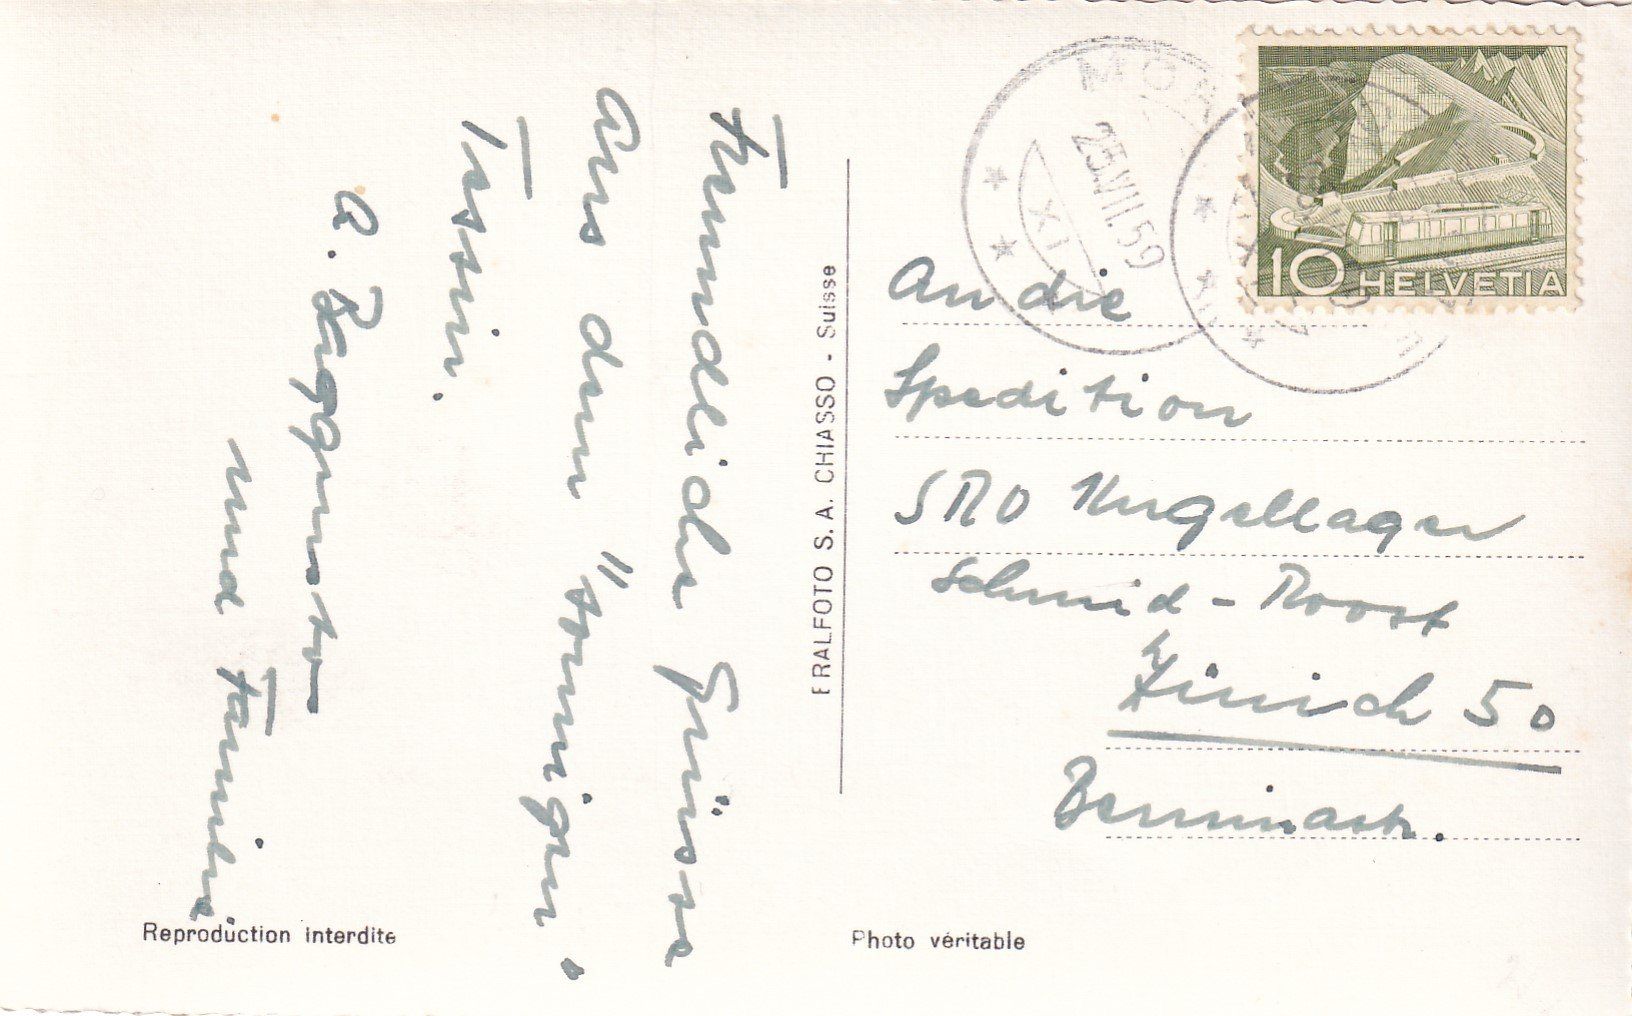 Freundliche Grüsse
aus dem "sonnigen"
Tessin.
A.
und Familie
Reproduction interdite
ERALFOTO S. A. CHIASSO - Suisse
25.VII.59
XI
10 HELVETIA
An die
Spedition
SRO Kugellager
Schmid-Roost
Zürich 50
Berninastr.
Photo véritable